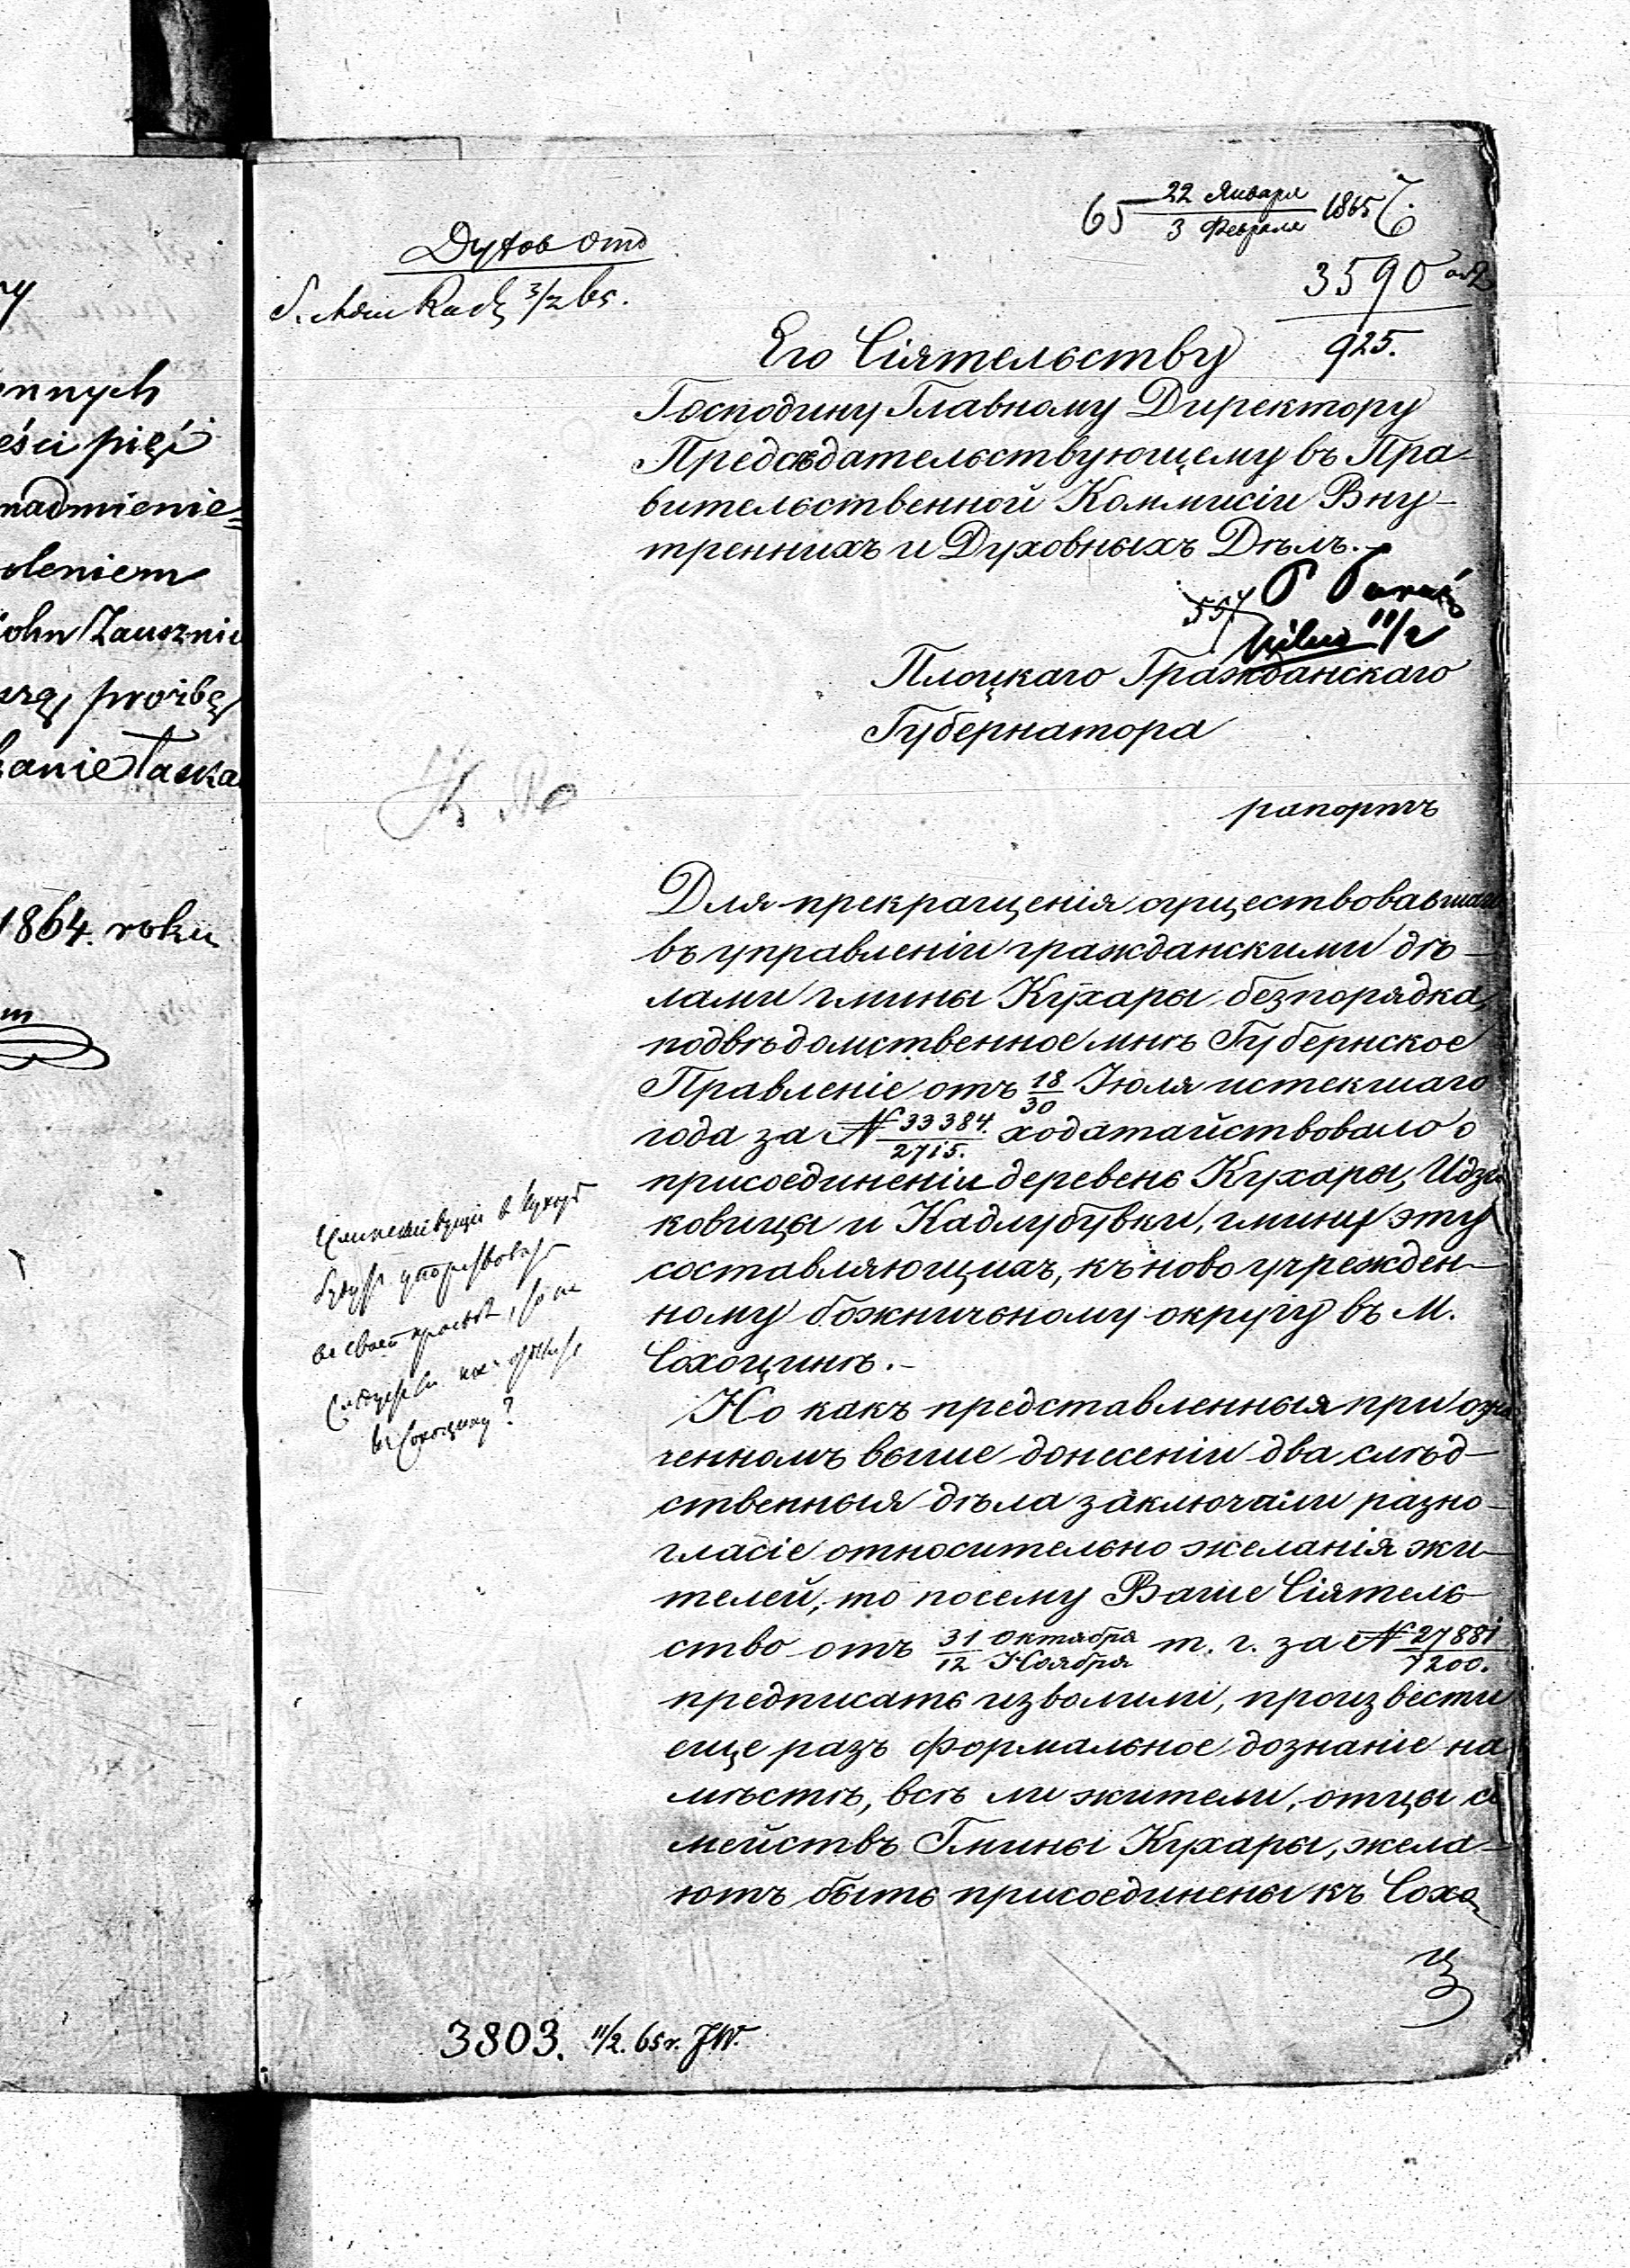 nnych
eści pięć
nadmienie=
oleniem
ohn Zausznic
prośbę
anie
1864. roku
65 22 Января / 3 Февраля 1865
Духов Отд
3590
925.
3/2 65.
Его Сіятельству
Господину Главному Директору
Предсѣдательствующему въ Пра-
вительственной Коммисіи Вну-
треннихъ и Духовныхъ Дѣлъ.-
557
11/2
Плоцкаго Гражданскаго
Губернатора
рапортъ
Для прекращенія существовавшаго
въ управленіи гражданскими дѣ-
лами гмины Кухары безпорядка,
подвѣдомственное мнѣ Губернское
Правленіе отъ 18/30 Іюля истекшаго
года за № 33384./2715. ходатайствовало о
присоединеніи деревень Кухары, Идзи
ковицы и Кадлубувки, гмину эту
составляющихъ, къ ново учрежден-
ному божничьному округу въ М.
Сохоцинѣ.-
Но какъ представленныя при озна
ченномъ выше донесеніи два слѣд-
ственныя дѣла заключали разно-
гласіе относительно желанія жи-
телей, то посему Ваше Сіятель-
ство отъ 31 Октября / 12 Ноября т. г. за № 27881/7200.
предписать изволили, произвести
еще разъ формальное дознаніе на
мѣстѣ, всѣ ли жители, отцы се
мействъ Гмины Кухары, жела-
ютъ быть присоединены къ Сохо
ц
3803. 11/2. 65 r. JW.